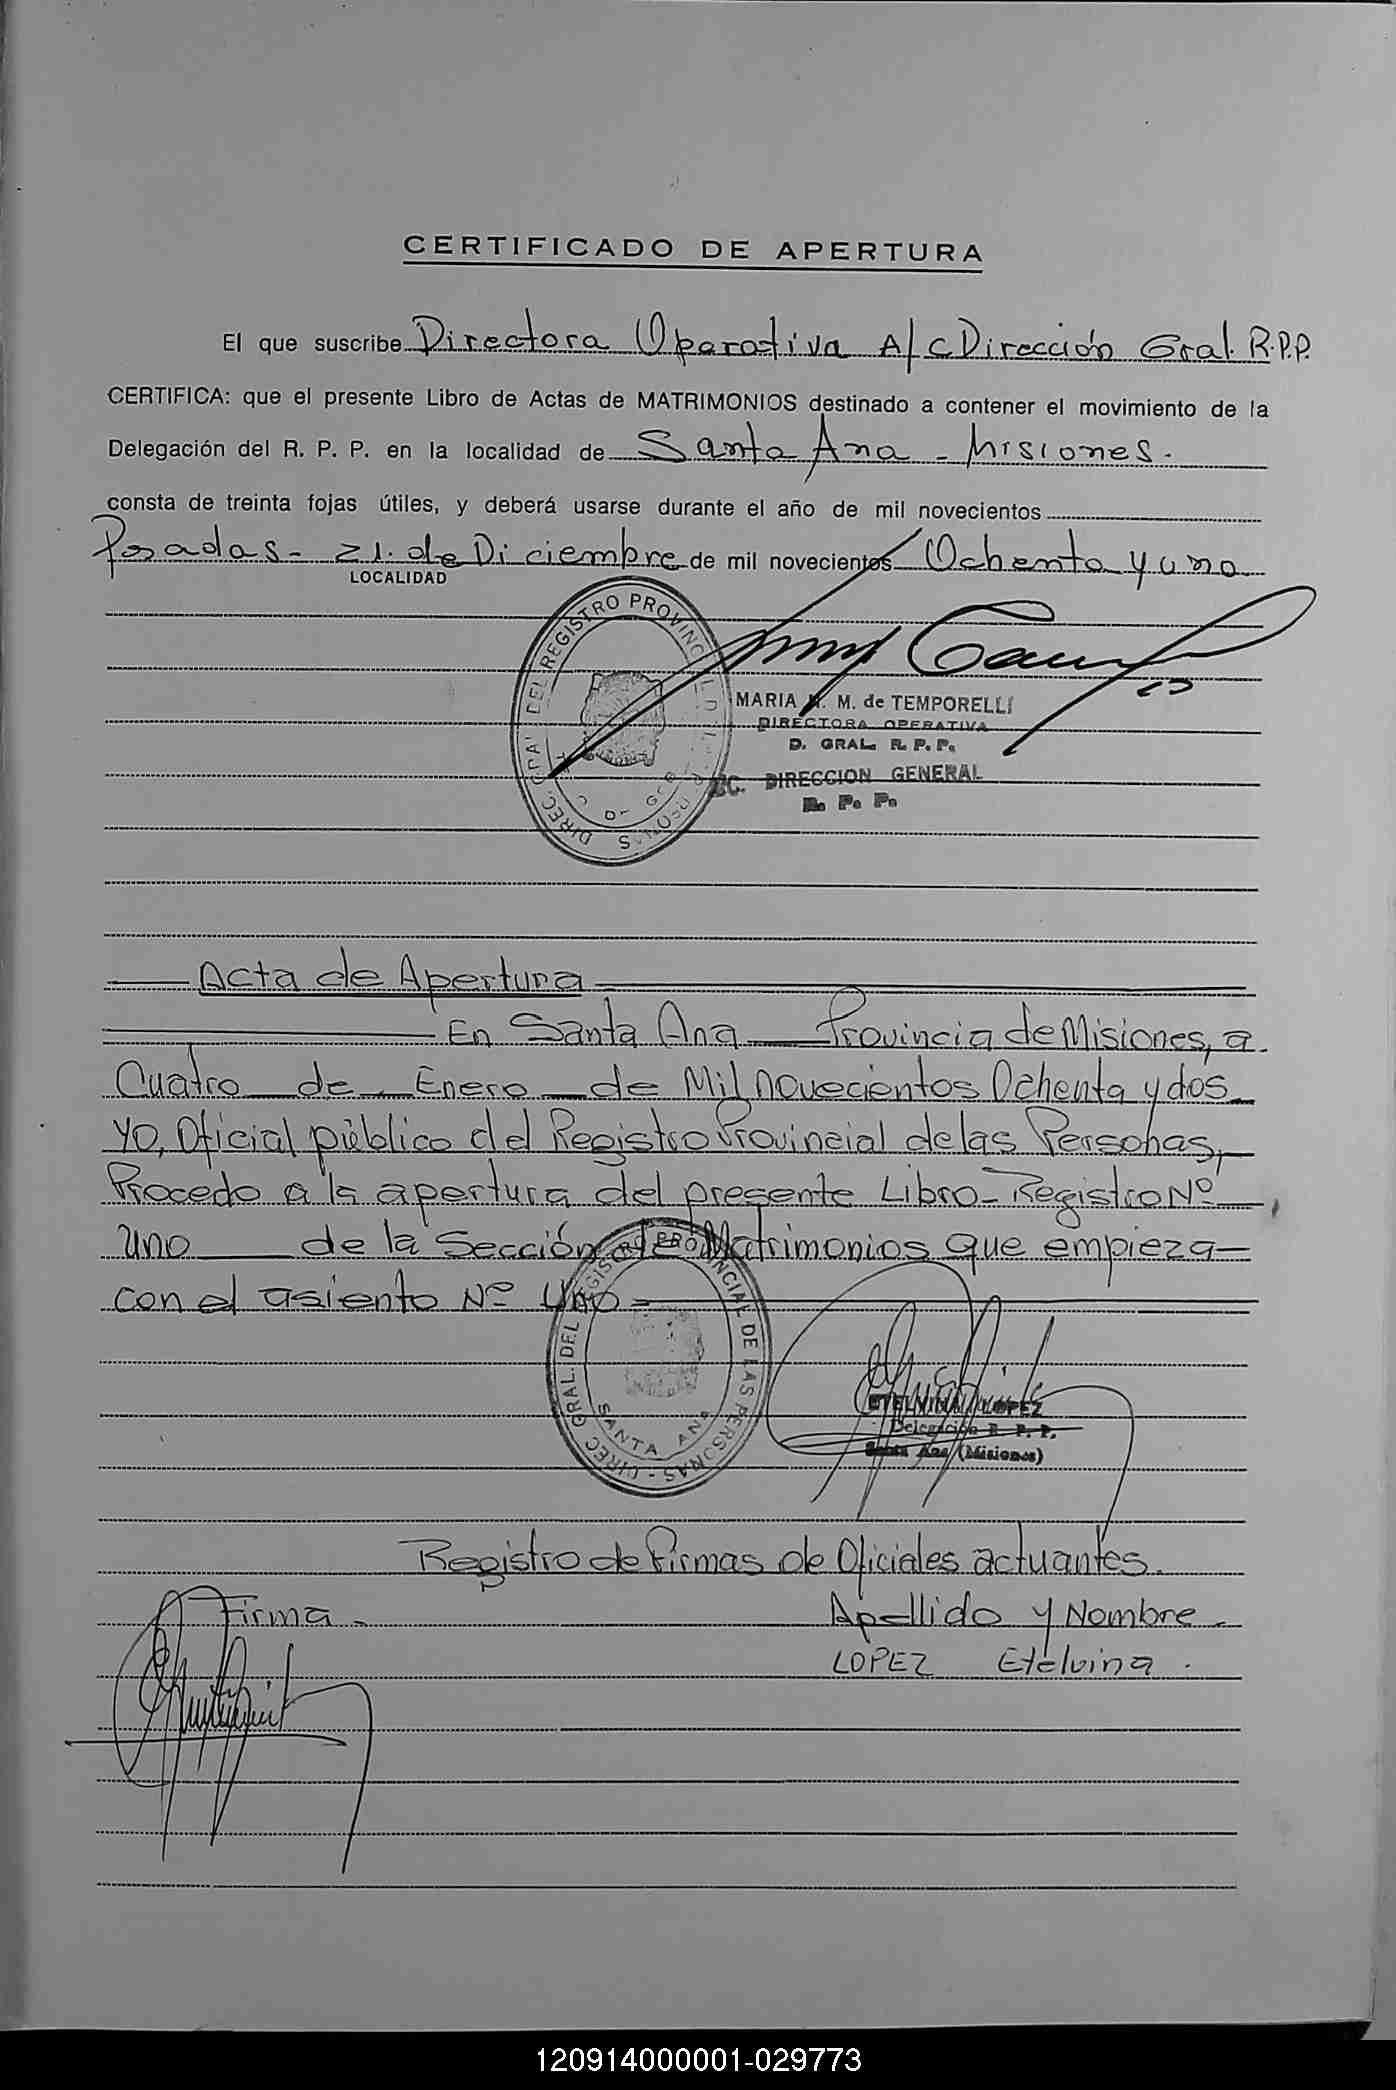 CERTIFICADO DE APERTURA
El que suscribe Directora Operativa A/C Dirección Gral. R.P.P.
CERTIFICA: que el presente Libro de Actas de MATRIMONIOS destinado a contener el movimiento de la
Delegación del R. P. P. en la localidad de Santa Ana - Misiones.
consta de treinta fojas útiles, y deberá usarse durante el año de mil novecientos
Posadas - 21. de Diciembre de mil novecientos Ochenta y uno
LOCALIDAD
DIREC. GRAL. DEL REGISTRO PROVINCIAL
MARIA M. de TEMPORELLI
DIRECTORA OPERATIVA
D. GRAL. R. P. P.
DIRECCION GENERAL
R. P. P.
Acta de Apertura
En Santa Ana Provincia de Misiones, a
Cuatro de Enero de Mil novecientos Ochenta y dos
yo, Oficial público del Registro Provincial de las Personas,
Procedo a la apertura del presente Libro-Registro Nº
uno de la Sección de Matrimonios que empieza
con el asiento Nº Uno-
DIREC. GRAL. DEL REGISTRO PROVINCIAL DE LAS PERSONAS -
SANTA ANA
ETELVINA LOPEZ
Delegación R. P. P.
Santa Ana (Misiones)
Registro de Firmas de Oficiales actuantes.
Firma - Apellido y Nombre -
LOPEZ Etelvina .
120914000001-029773